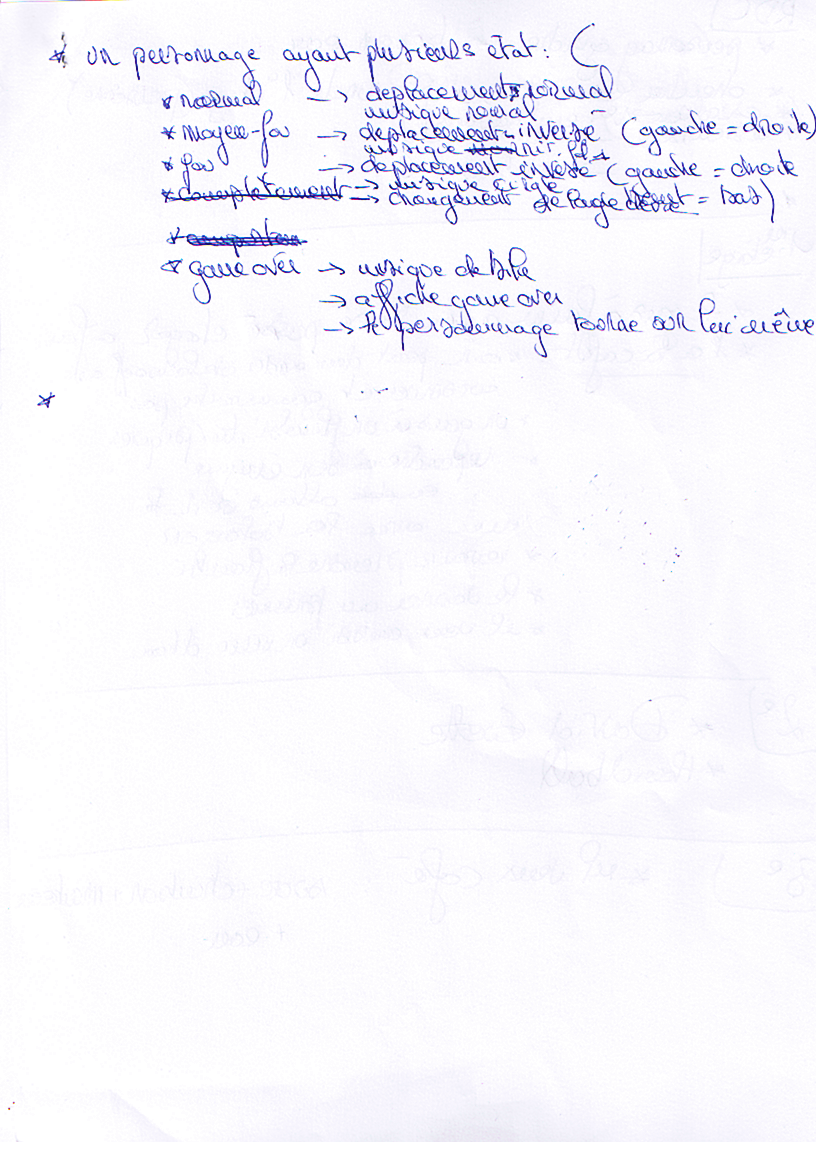 * un personnage ayant plusieurs etat : (
* normal → deplacement normal
musique normal
* moyen-fou → deplacement inverse (gauche = droite)
musique
* fou → deplacement inverse (gauche = droite
haut = bas)
* completement → musique
→ changement de
* game over → musique debile
→ affiche game over
→ le personnage tourne sur lui même
*